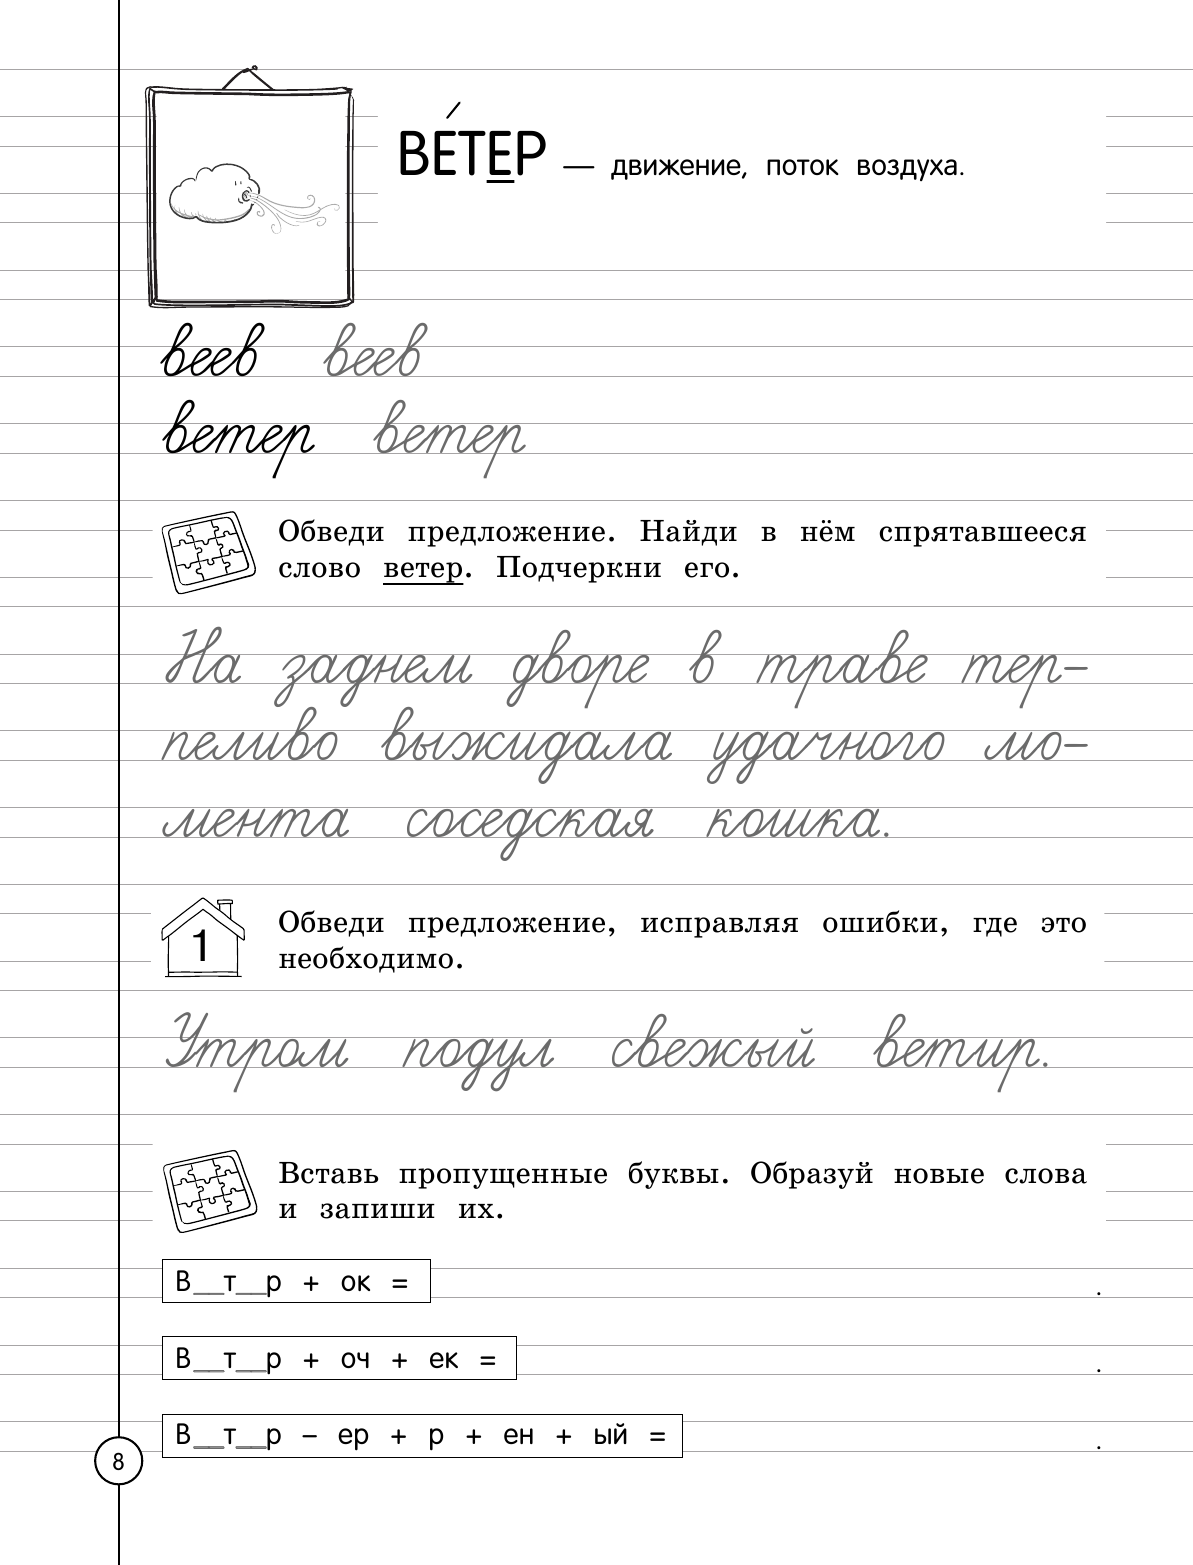 ВЕ́ТЕР — движение, поток воздуха.
веев веев
ветер ветер
Обведи предложение. Найди в нём спрятавшееся
слово ветер. Подчеркни его.
На заднем дворе в траве тер-
пеливо выжидала удачного мо-
мента соседская кошка.
1
Обведи предложение, исправляя ошибки, где это
необходимо.
Утром подул свежый ветир.
Вставь пропущенные буквы. Образуй новые слова
и запиши их.
В__т__р + ок = .
В__т__р + оч + ек = .
В__т__р – ер + р + ен + ый = .
8